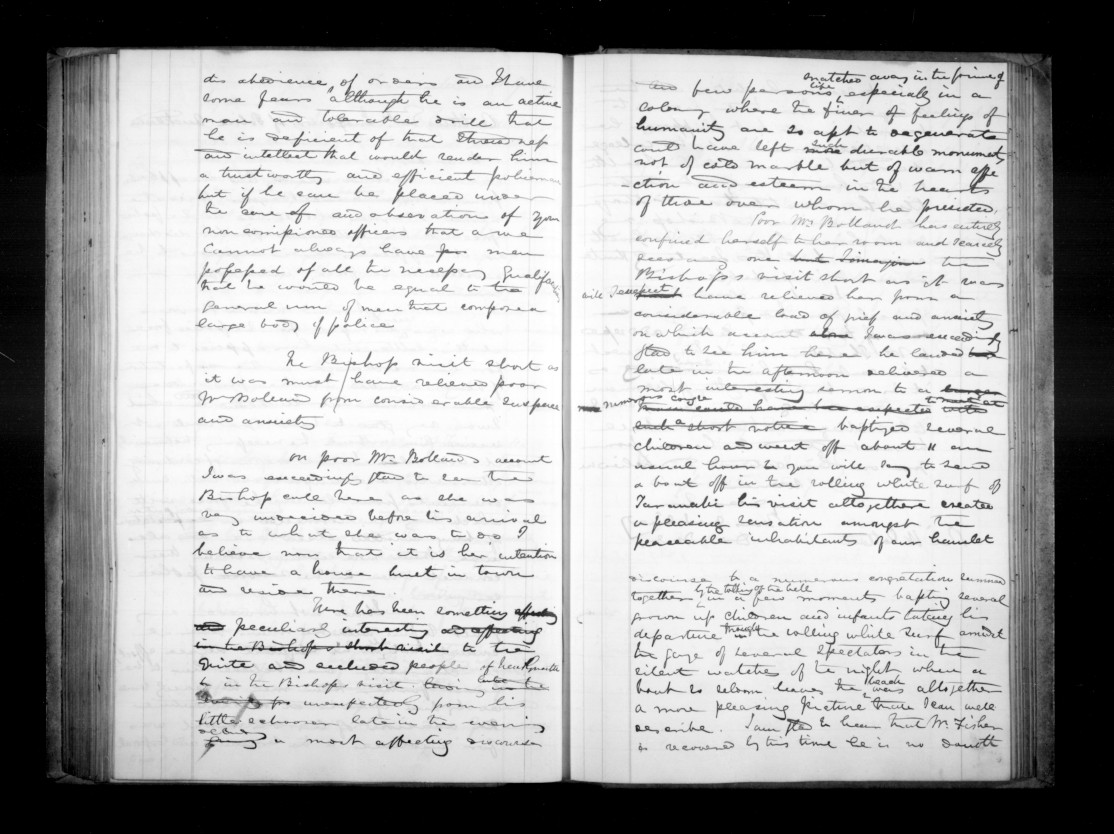 dis obedience of orders and I have
some fears although he is an active
man and tolerable drill that
he is deficient of that
and intellect that would render him
a trustworthy and efficient policeman
but if he can be placed under
the care of and observation of your
non comissioned officers that a we
cannot always have for men
possessed of all the nessessary qualifications
that he would be equal to the
general run of men that compose a
large body of police
The Bishop visit short as
it was must have relieved poor
Mrs Bolland from considerable suspence
and anxiety
on poor Mrs Bollands account
I was exceedingly glad to see the
Bishop call here as she was
very undecided before his arrival
as to what she was to do I
believe now that it is her intention
to have a house built in town
and reside there.
There has been something affecting
and peculiarly interesting and affecting
in the Bishops short visit to the
quite and secluded people of
to in the Bishops visit
unexpectedly from his
little schooner late in the evening
a most affecting discourse
snatched away in the prime of
few persons like especially in a
colony where the finer of feelings of
humanity are so apt to degenerate
could have left such more durable monuments
not of cold marble but of warm affe
-ction and esteem in the hearts
of those over whom he presided.
Poor Mrs Bolland has entirely
confined herself to her room and scarcely
sees any one but I imagine the
Bishops visit short as it was
will I suspect have relieved her from a
considerable load of grief and anxiety
on which account also I was exceedingly
glad to see him here he landed
late in the afternoon delivered a
most interesting sermon to a
numerous
such a short notice baptized several
children and went off about 11 am
usual hour to you will say to send
a boat off in the rolling white surf of
Taranaki his visit altogethere created
a pleasing sensation amongst the
peaceable inhabitants of our hamlet
discourse to a numerous congratation summond
together by the tolling of the bell in a few moments baptizing several
grown up children and infants taking his
departure through the rolling white surf amidst
the gaze of several spectators in the
silent watches of the night when
boat so seldom leaves the beach was altogether
a more pleasing picture than I can well
describe. I am glad to hear that Mr. Fisher
is recovered by this time he is no doubt